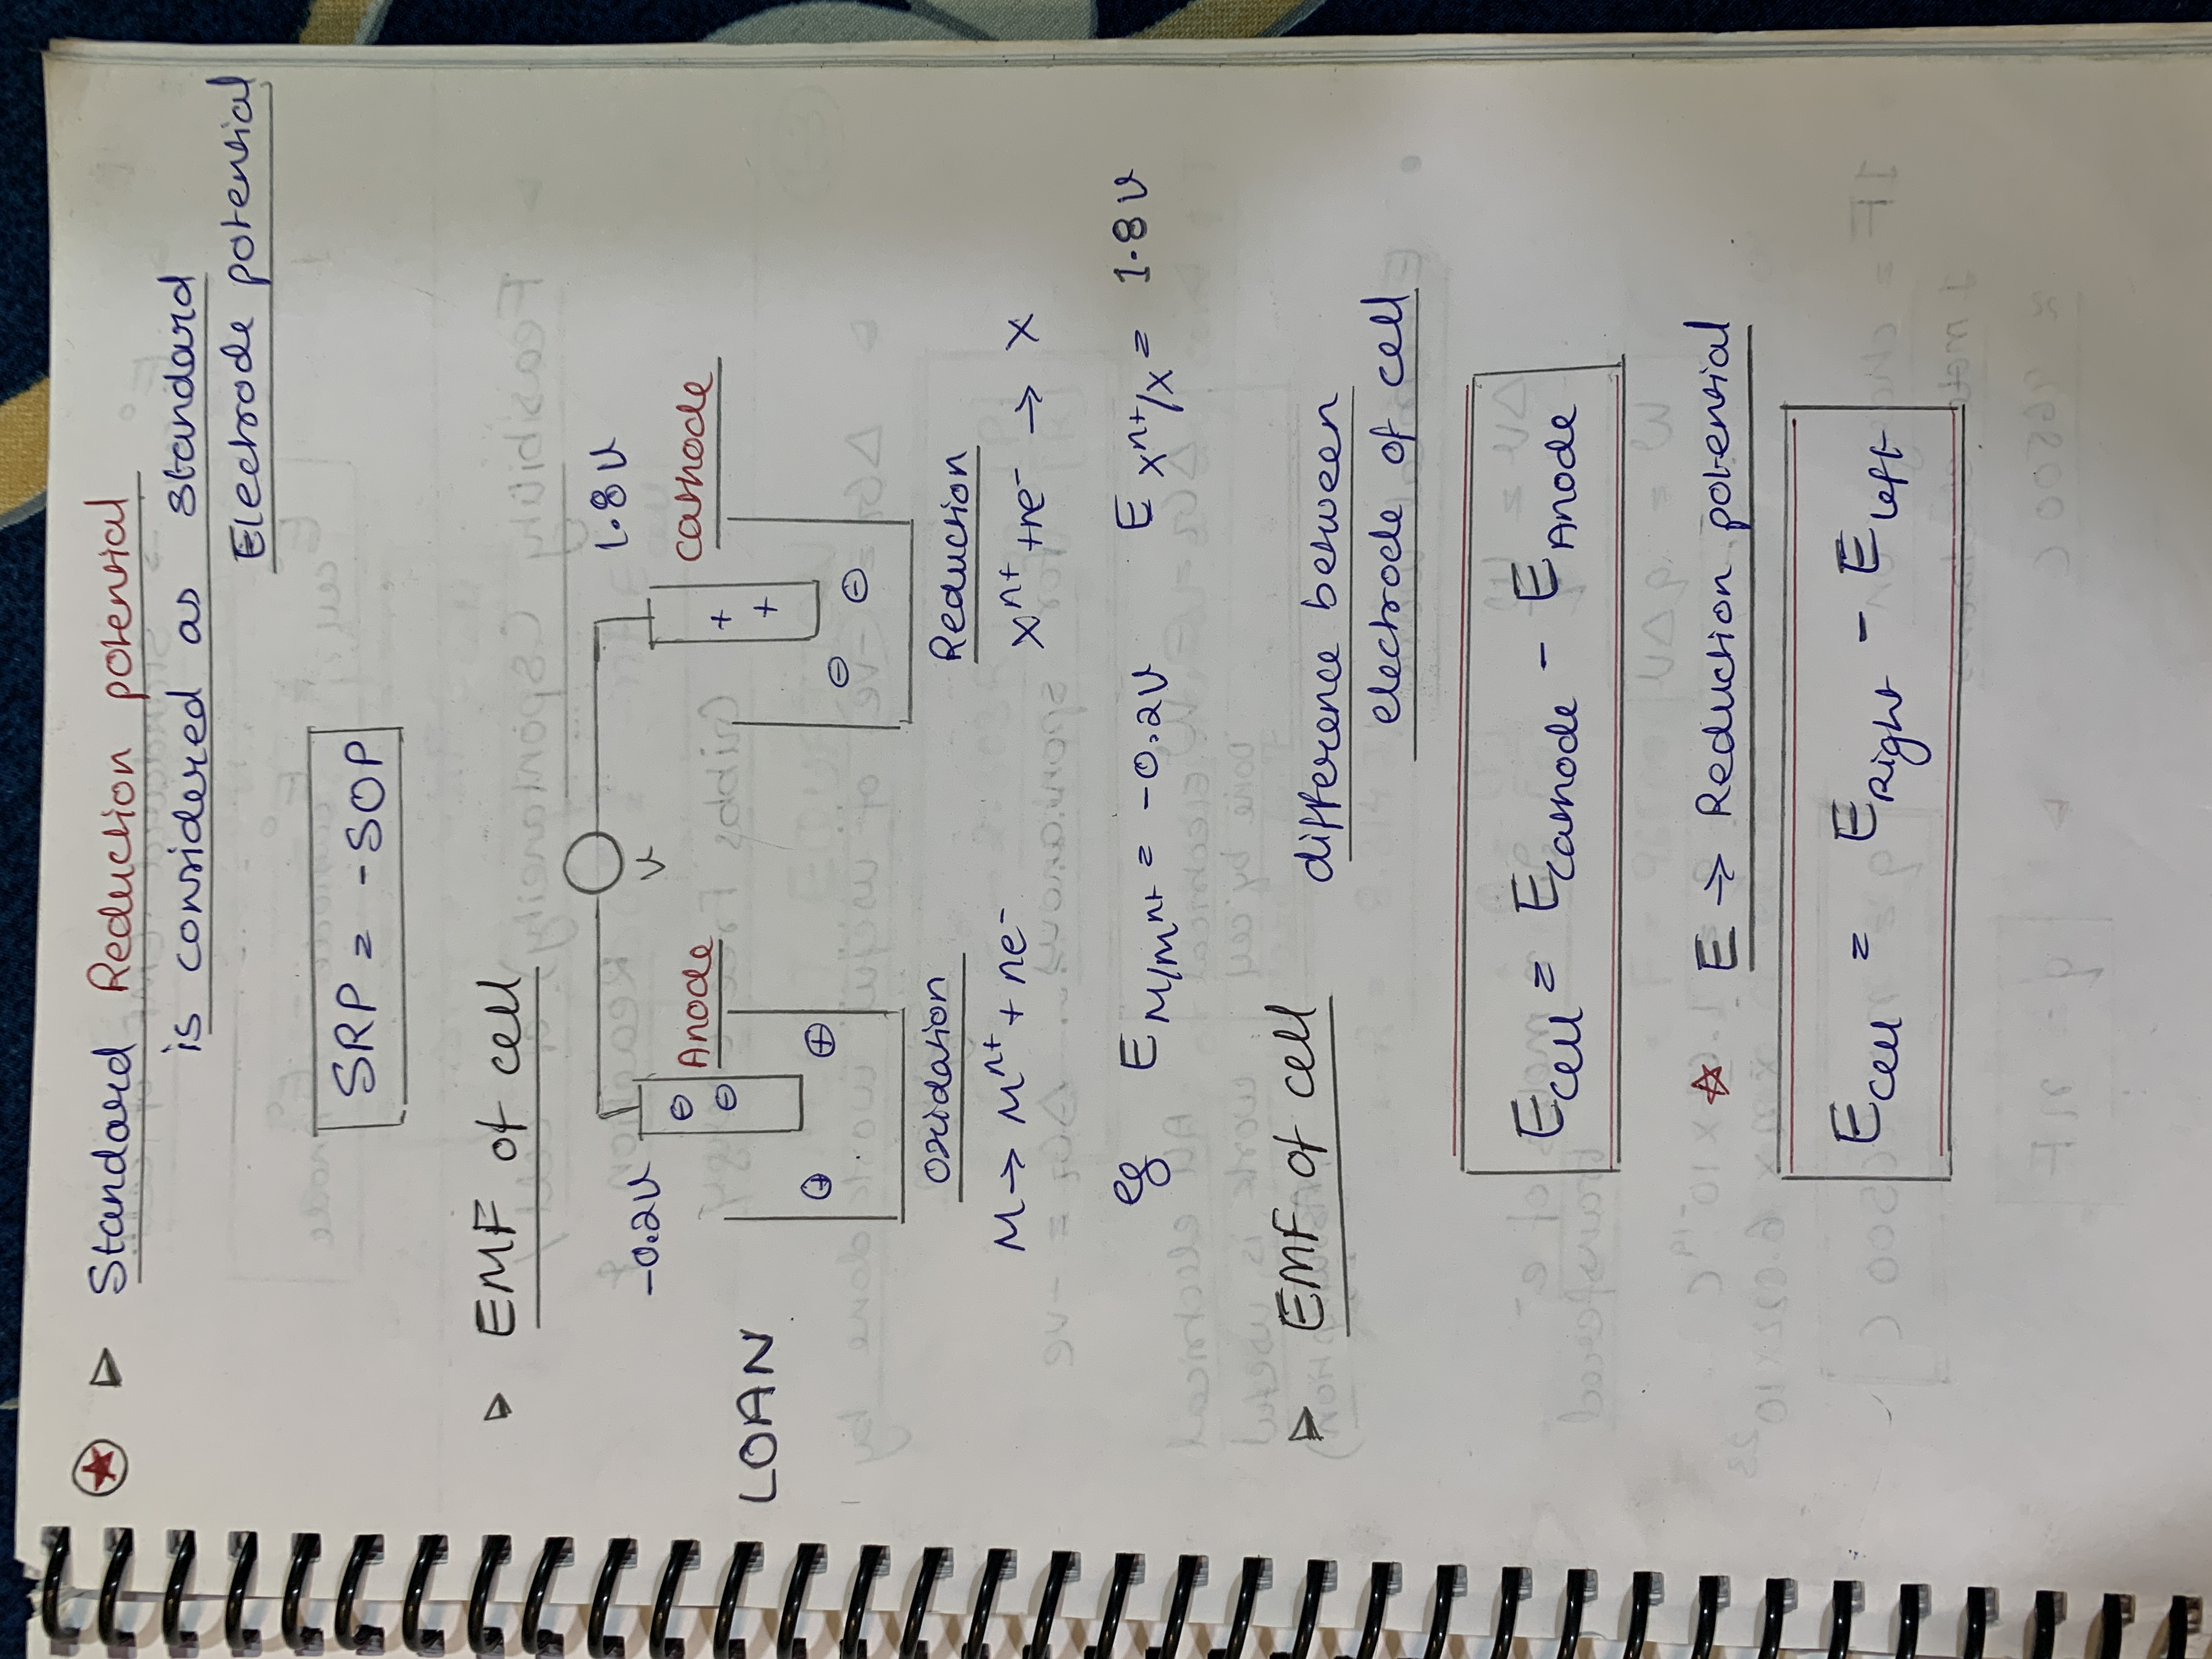 Standard Reduction potential
is considered as standard
Electrode potential
SRP = -SOP
EMF of cell
-0.2V
1.8V
V
Anode
Cathode
LOAN
Oxidation
Reduction
M → Mⁿ⁺ + ne⁻
Xⁿ⁺ + ne⁻ → X
eg E M/Mⁿ⁺ = -0.2V E Xⁿ⁺/X = 1.8V
EMF of cell difference between
electrode of cell
E cell = E cathode - E Anode
E → Reduction potential
E cell = E Right - E left